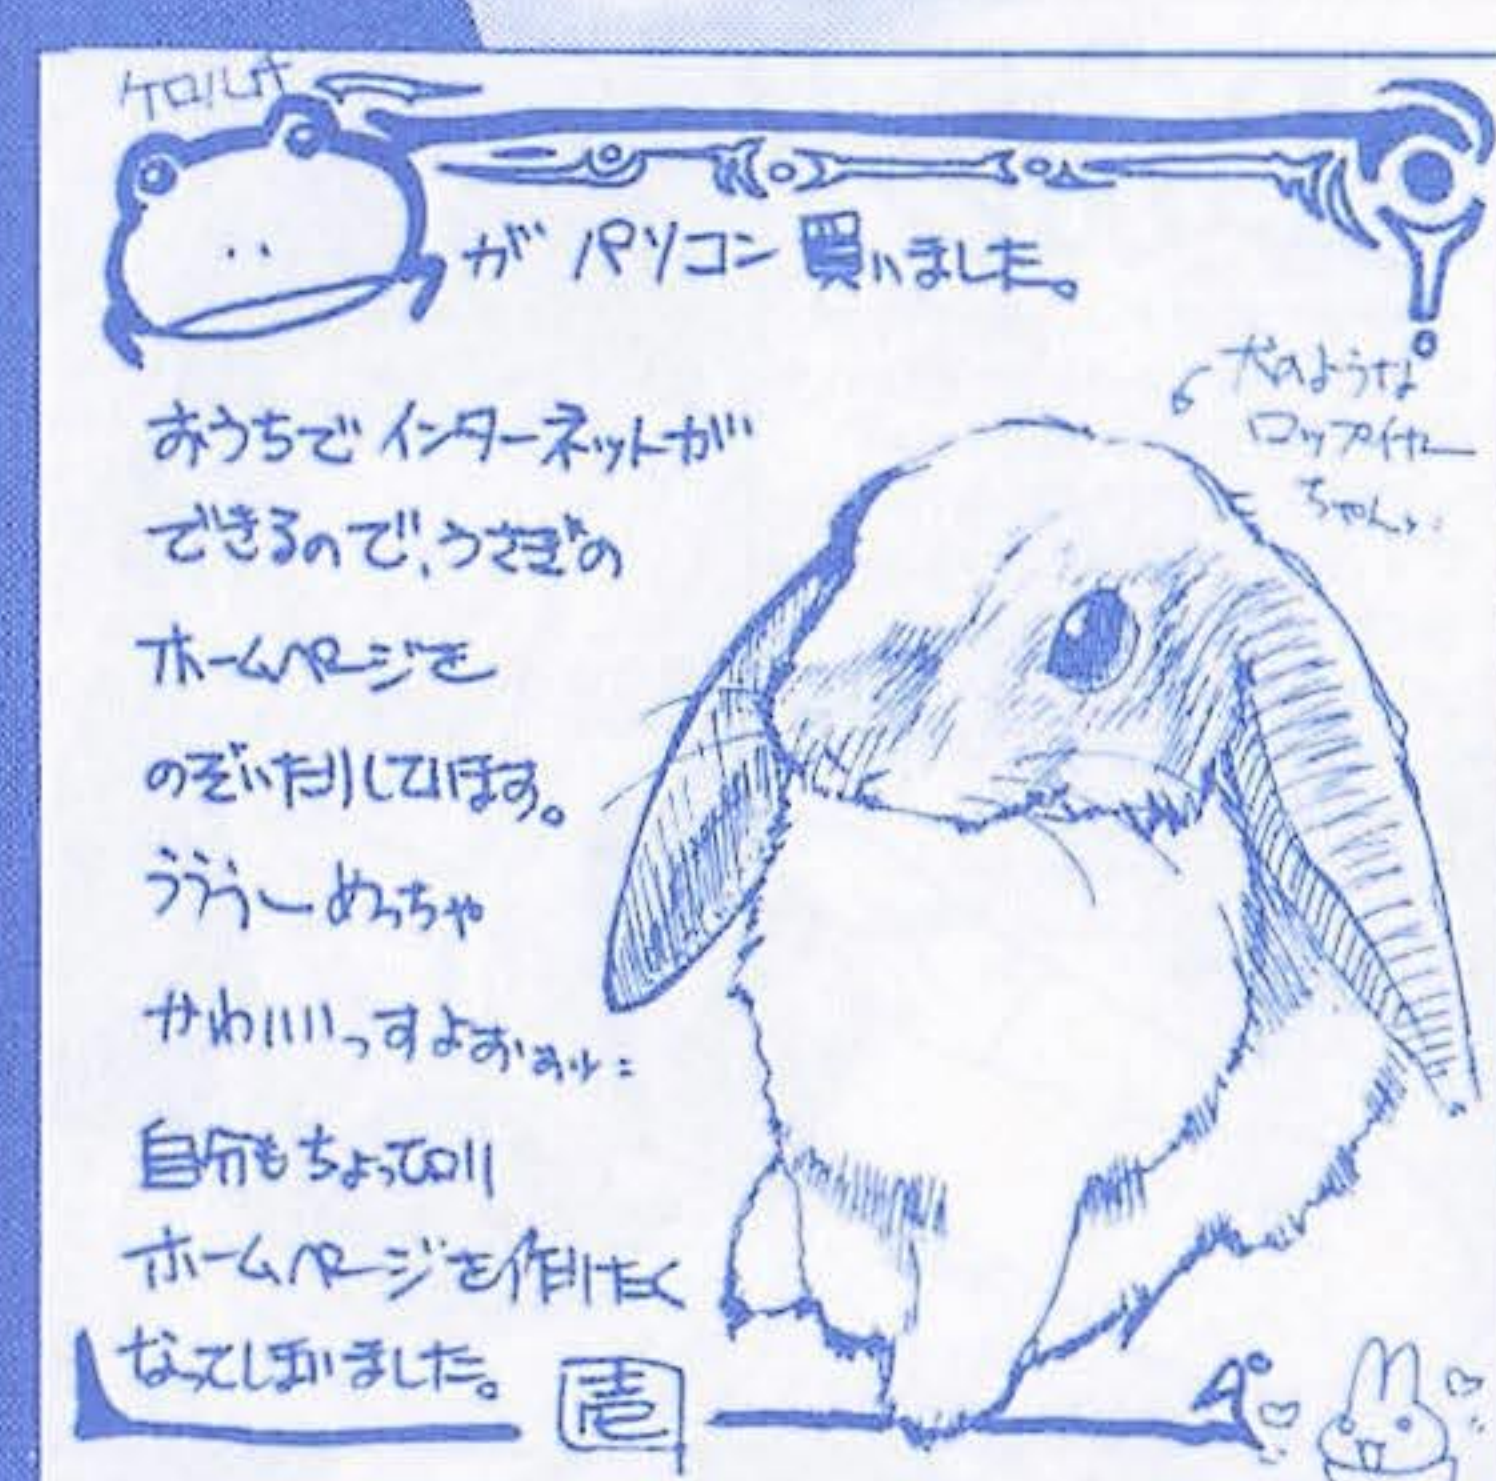 が パソコン 買いました。
犬のような
ロップイヤー
ちゃん
おうちで インターネットが
できるので、うさぎの
ホームページを
のぞいたりしています。
うううー めっちゃ
かわいいっすよおぉぉ
自分も ちょっぴり
ホームページを作りたく
なってしまいました。
壱